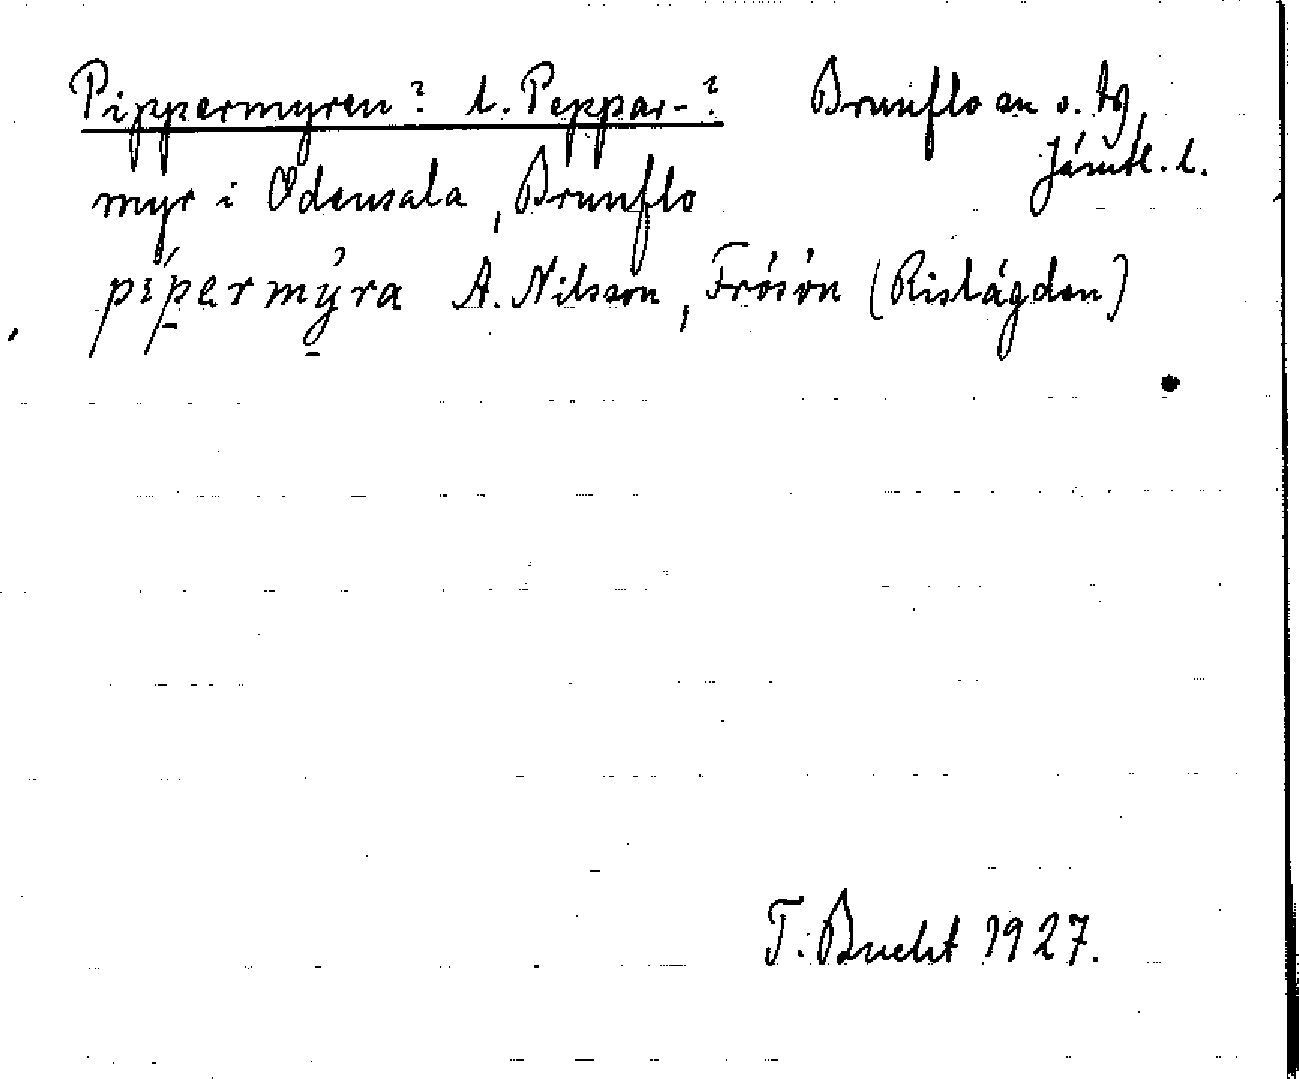 Pippermyren? l. Peppar-? Brunflo sn o. tg
Jämtl. l.
myr i Odensala, Brunflo
pípermýra A. Nilsson, Frösön (Ristägden)
T. Bucht 1927.